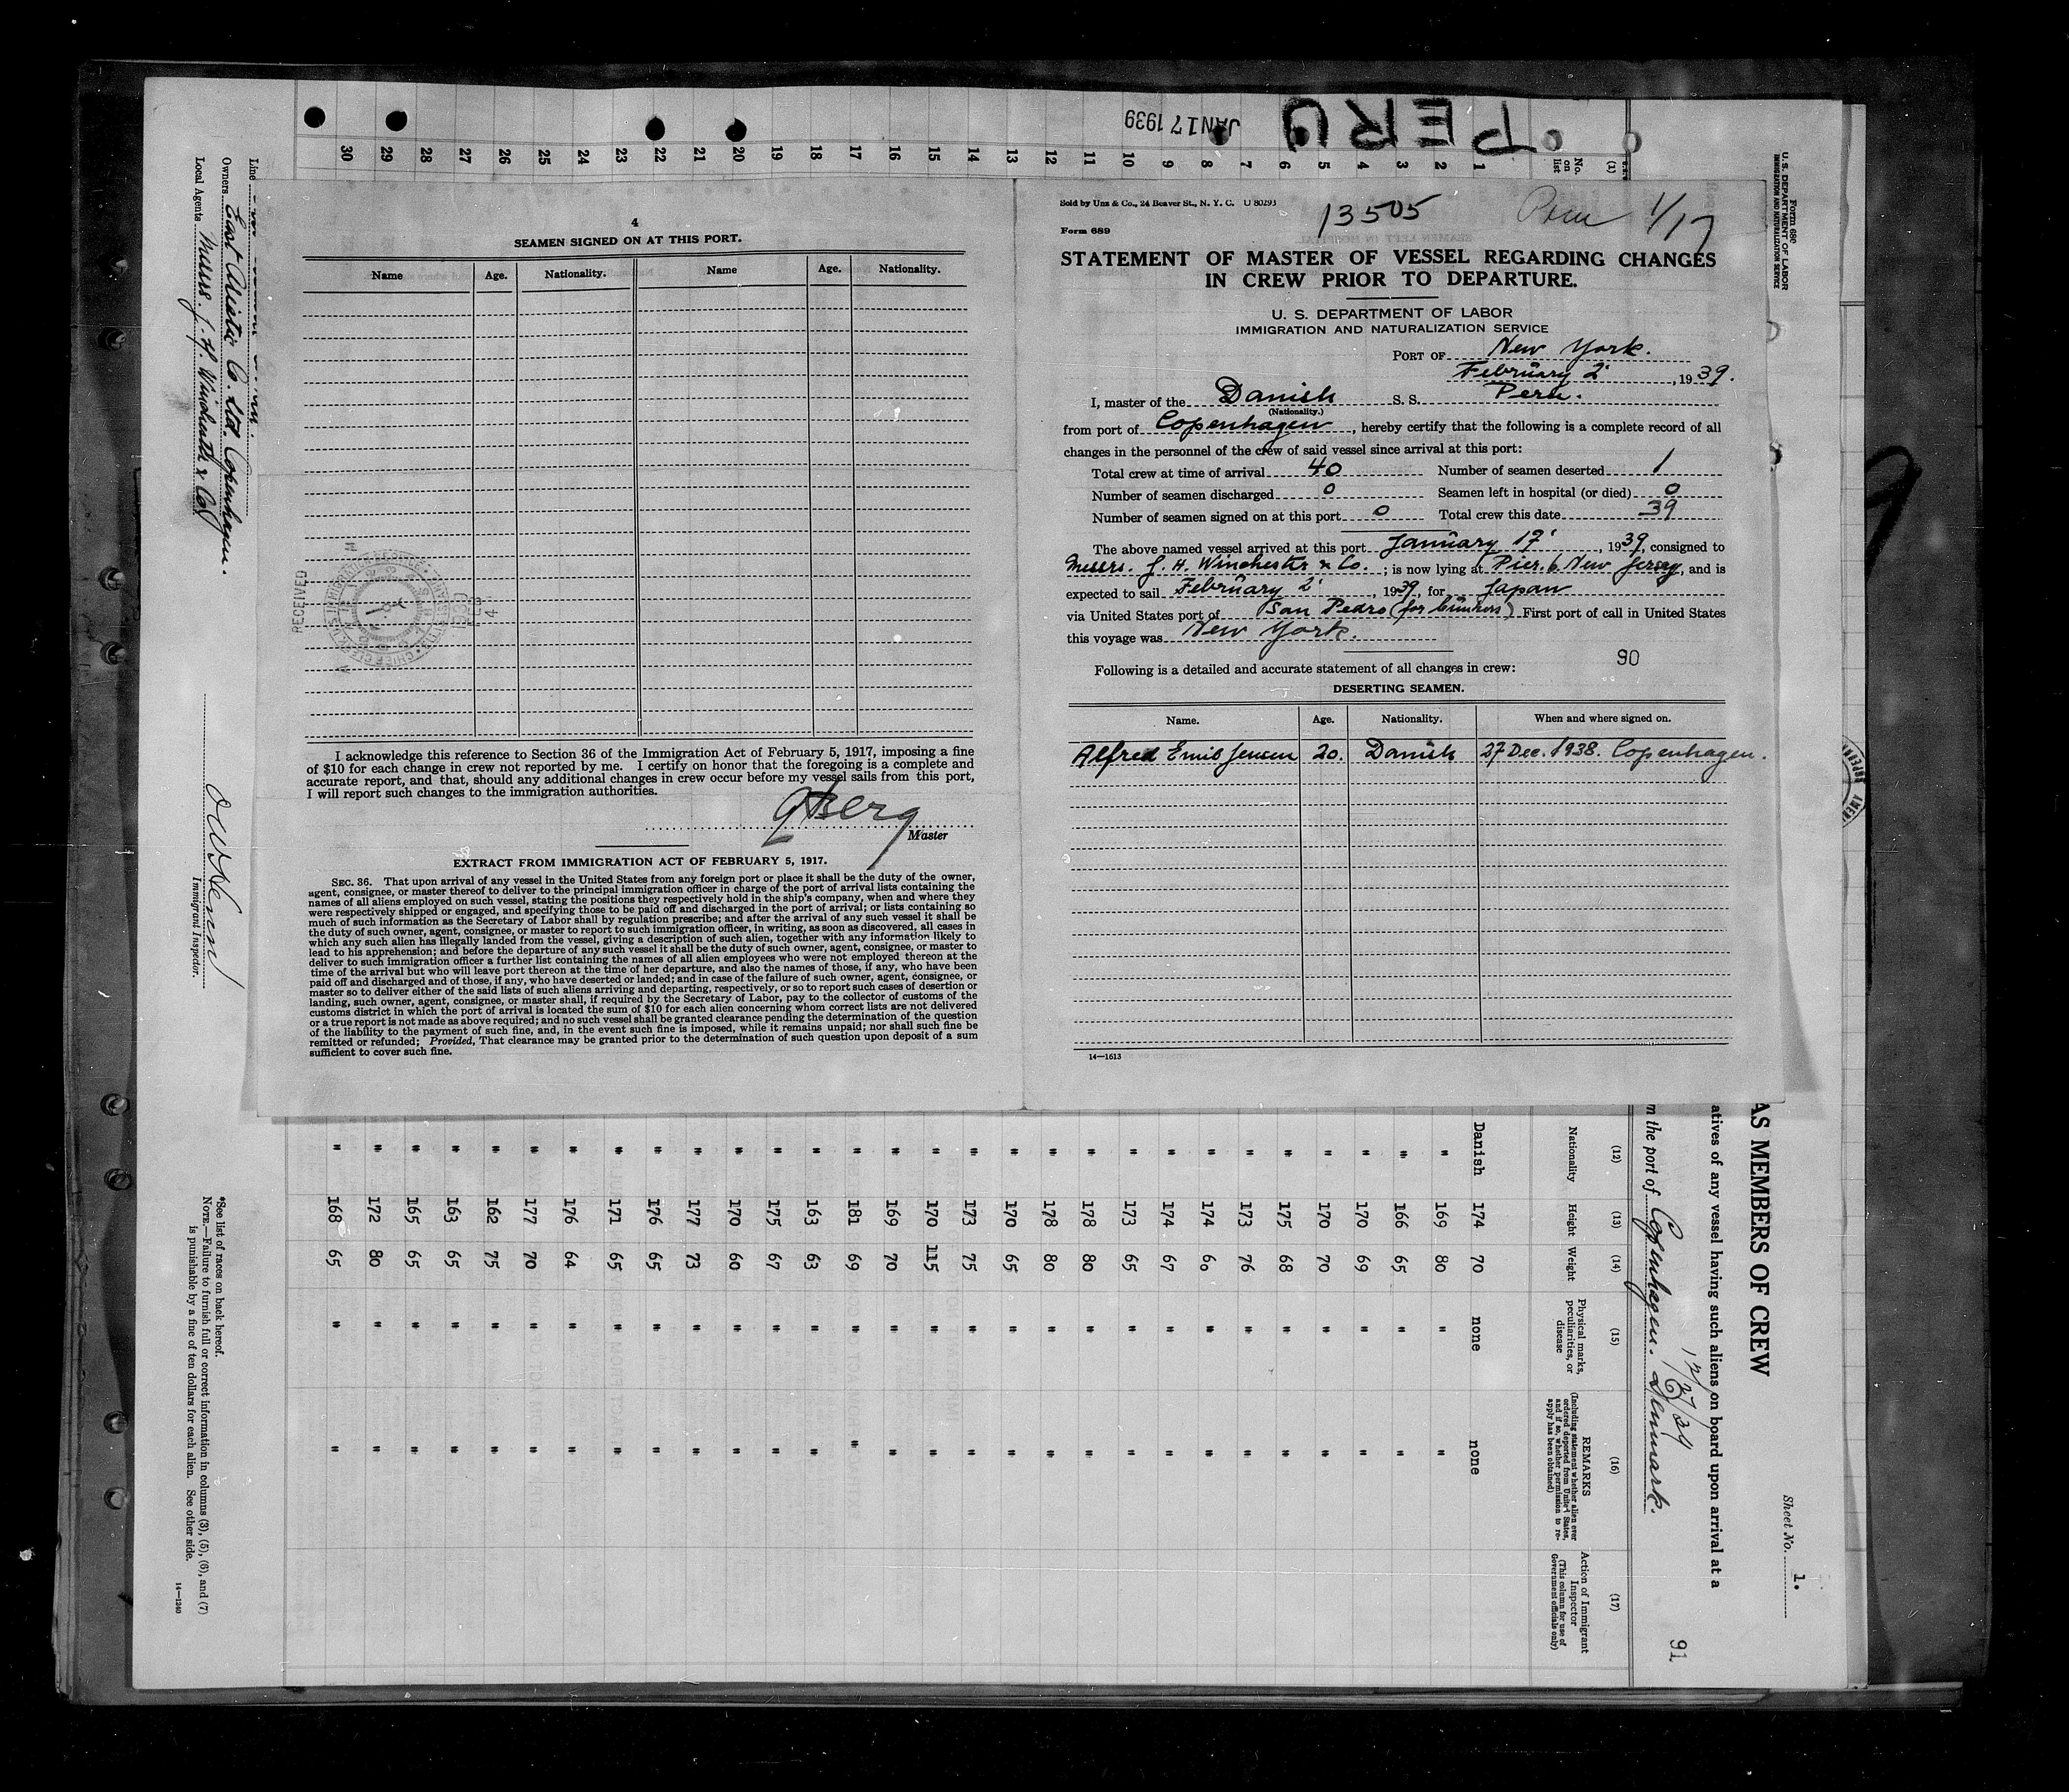 PERU
JAN 17 1939
Form 680
U. S. DEPARTMENT OF LABOR
IMMIGRATION AND NATURALIZATION SERVICE
(1)
No. on list
1
2
3
4
5
6
7
8
9
10
11
12
13
14
15
16
17
18
19
20
21
22
23
24
25
26
27
28
29
30
Line
Owners East Asiatic Co. Ltd. Copenhagen.
Local Agents Messrs. J. H. Winchester & Co.
Immigrant Inspector.
4
SEAMEN SIGNED ON AT THIS PORT.
Name Age. Nationality. Name Age. Nationality.
RECEIVED
I acknowledge this reference to Section 36 of the Immigration Act of February 5, 1917, imposing a fine
of $10 for each change in crew not reported by me. I certify on honor that the foregoing is a complete and
accurate report, and that, should any additional changes in crew occur before my vessel sails from this port,
I will report such changes to the immigration authorities.
Berg
Master
EXTRACT FROM IMMIGRATION ACT OF FEBRUARY 5, 1917.
SEC. 36. That upon arrival of any vessel in the United States from any foreign port or place it shall be the duty of the owner,
agent, consignee, or master thereof to deliver to the principal immigration officer in charge of the port of arrival lists containing the
names of all aliens employed on such vessel, stating the positions they respectively hold in the ship's company, when and where they
were respectively shipped or engaged, and specifying those to be paid off and discharged in the port of arrival; or lists containing so
much of such information as the Secretary of Labor shall by regulation prescribe; and after the arrival of any such vessel it shall be
the duty of such owner, agent, consignee, or master to report to such immigration officer, in writing, as soon as discovered, all cases in
which any such alien has illegally landed from the vessel, giving a description of such alien, together with any information likely to
lead to his apprehension; and before the departure of any such vessel it shall be the duty of such owner, agent, consignee, or master to
deliver to such immigration officer a further list containing the names of all alien employees who were not employed thereon at the
time of the arrival but who will leave port thereon at the time of her departure, and also the names of those, if any, who have been
paid off and discharged and of those, if any, who have deserted or landed; and in case of the failure of such owner, agent, consignee, or
master so to deliver either of the said lists of such aliens arriving and departing, respectively, or so to report such cases of desertion or
landing, such owner, agent, consignee, or master shall, if required by the Secretary of Labor, pay to the collector of customs of the
customs district in which the port of arrival is located the sum of $10 for each alien concerning whom correct lists are not delivered
or a true report is not made as above required; and no such vessel shall be granted clearance pending the determination of the question
of the liability to the payment of such fine, and, in the event such fine is imposed, while it remains unpaid; nor shall such fine be
remitted or refunded; Provided, That clearance may be granted prior to the determination of such question upon deposit of a sum
sufficient to cover such fine.
Sold by Unz & Co., 24 Beaver St., N. Y. C. U 80293
13505 Peru 1/17
Form 689
STATEMENT OF MASTER OF VESSEL REGARDING CHANGES
IN CREW PRIOR TO DEPARTURE.
U. S. DEPARTMENT OF LABOR
IMMIGRATION AND NATURALIZATION SERVICE
PORT OF New York.
February 2', 1939.
I, master of the Danish S. S. Peru.
(Nationality.)
from port of Copenhagen, hereby certify that the following is a complete record of all
changes in the personnel of the crew of said vessel since arrival at this port:
Total crew at time of arrival 40 Number of seamen deserted 1
Number of seamen discharged 0 Seamen left in hospital (or died) 0
Number of seamen signed on at this port 0 Total crew this date 39
The above named vessel arrived at this port January 17', 1939, consigned to
Messrs. J. H. Winchester & Co.; is now lying at Pier. 6. New Jersey, and is
expected to sail February 2', 1939, for Japan
via United States port of San Pedro (for bunkers) First port of call in United States
this voyage was New York.
Following is a detailed and accurate statement of all changes in crew: 90
DESERTING SEAMEN.
Name. Age. Nationality. When and where signed on.
Alfred Emil Jensen 20. Danish 27 Dec. 1938. Copenhagen.
14—1613
Sheet No. 1.
91
AS MEMBERS OF CREW
atives of any vessel having such aliens on board upon arrival at a
m the port of Copenhagen. Denmark.
(12) (13) (14) (15) (16) (17)
Nationality Height Weight Physical marks, peculiarities, or disease REMARKS (Including statement whether alien ever ordered deported from United States, and if so, whether permission to reapply has been obtained) Action of Immigrant Inspector (This column for use of Government officials only)
Danish 174 70 none none
" 169 80 " "
" 166 65 " "
" 170 69 " "
" 170 70 " "
" 175 68 " "
" 173 76 " "
" 174 60 " "
" 174 67 " "
" 173 65 " "
" 178 80 " "
" 178 80 " "
" 170 65 " "
" 173 75 " "
" 170 115 " "
" 169 70 " "
" 181 69 " "
" 163 63 " "
" 175 67 " "
" 170 60 " "
" 177 73 " "
" 176 65 " "
" 171 65 " "
" 176 64 " "
" 177 70 " "
" 162 75 " "
" 163 65 " "
" 165 65 " "
" 172 80 " "
" 168 65 " "
*See list of races on back hereof.
NOTE.—Failure to furnish full or correct information in columns (3), (5), (6), and (7)
is punishable by a fine of ten dollars for each alien. See other side.
14—1240